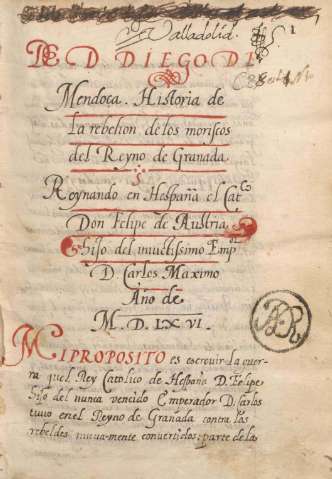 Valladolid.
DE D DIEGO DE
Mendoça. Historia de
la rebelion de los moriscos
del Reyno de Granada
Reynando en Hespaña el Catco
Don Felipe de Austria
hijo del inuictissimo Empr
D. Carlos Maximo
Año de
M. D. LX VI.
MI PROPOSITO es escreuir la guer-
ra quel Rey Catolico de Hespaña D. Felipe
hijo del nunca vencido Emperador D. Carlos
tuuo en el Reyno de Granada contra los
rebeldes nueua-mente conuertidos; parte de la